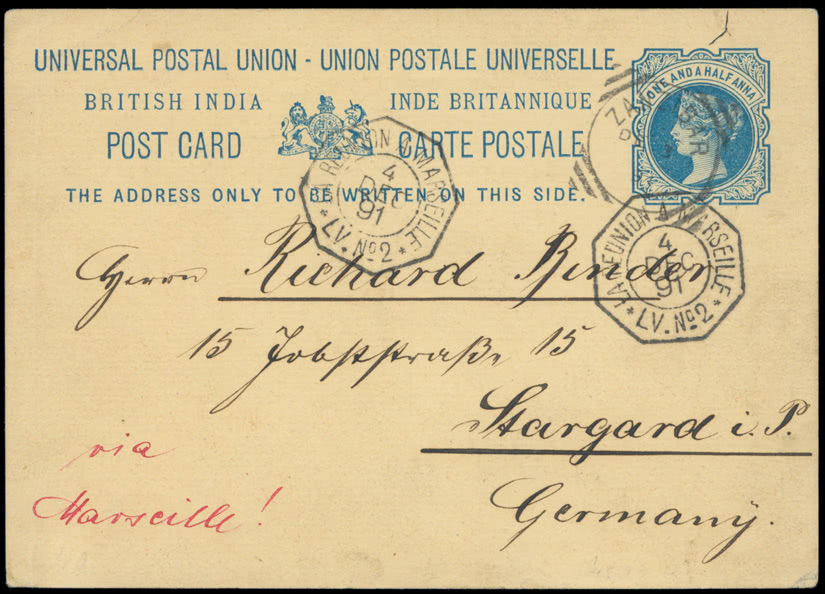 UNIVERSAL POSTAL UNION - UNION POSTALE UNIVERSELLE
BRITISH INDIA INDE BRITANNIQUE
POST CARD CARTE POSTALE
THE ADDRESS ONLY TO BE WRITTEN ON THIS SIDE.
ONE AND A HALF ANNA
LA REUNION A MARSEILLE
4
DEC
91
* LV. No 2 *
LA REUNION A MARSEILLE
4
DEC
91
* LV. No 2 *
Herrn Richard Binder
15 Jobststraße 15
Stargard i. P.
Germany.
via
Marseille!